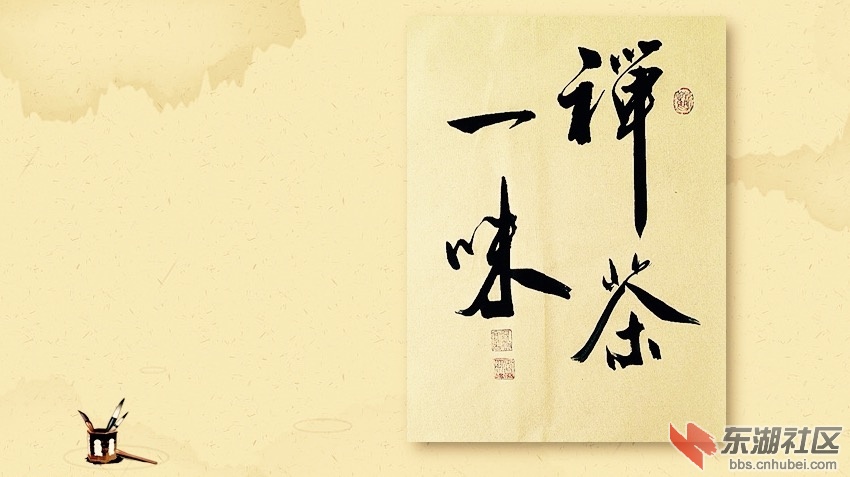 禪茶
一味
东湖社区
bbs.cnhubei.com